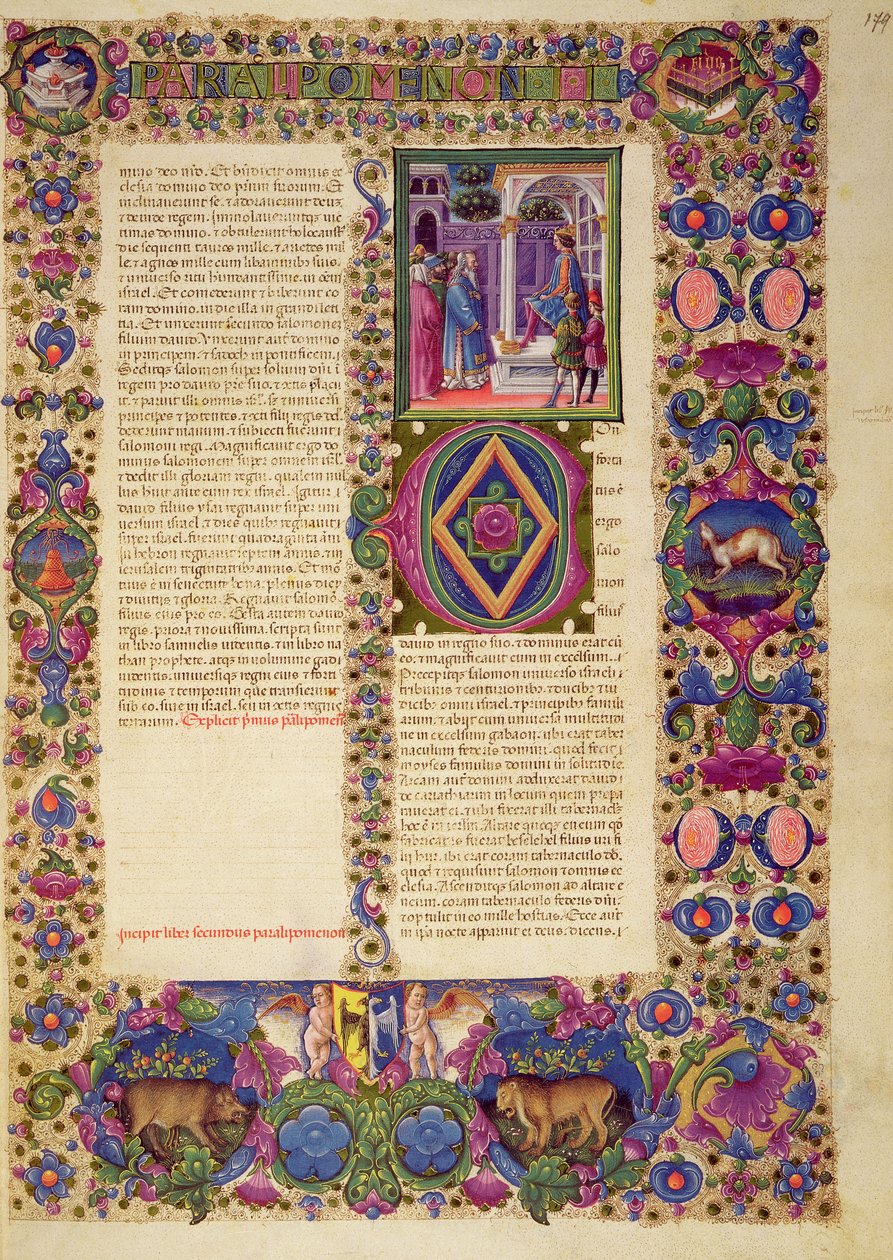 179
PARALIPOMENON
FIDES
mino deo nrõ. Et bñdixit omnis ec
clesia domino deo patrum suorum. Et
inclinaverunt se. & adoraverunt deum.
& deinde regem. Immolaveruntqz vic
timas domino. & obtulerunt holocausta
die sequenti tauros mille. & arietes mil
le. & agnos mille cum libaminibus suis.
& universo ritu habundantissime. in oem
israel. Et comederunt & biberunt co
ram domino. in die illa in grandi leti
tia. Et unxerunt secundo salomonem
filium david. Unxerunt aut domino
in principem. & sadoch in pontificem.
Seditqz salomon super solium dñi i
regem pro david pre suo. & cxtis placuit.
& paruit illi omnis isrl. sz & universi
principes & potentes. & cxti filii regis dd.
dederunt manum. & subiecti fuerunt
salomoni regi. Magnificavit ergo do
minus salomonem super omnem isrl.
& dedit illi gloriam regni. qualem nul
lus huit ante eum rex israel. Igitur
david filius ysai regnavit super uni
versum israel. & dies quibz regnavit
super israel. fuerunt quadraginta añi.
In hebron regnavit septem annis. & in
ierusalem triginta tribus annis. Et mor
tuus e in senectute bona. plenus dierz
& divitiis & gloria. Regnavit salomon
filius eius pro eo. Gesta autem david
regis. priora & novissima. scripta sunt
in libro samuelis videntis. & in libro na
than prophete. atqz in volumine gad
videntis. universiqz regni eius & forti
tudinis & temporum que transierunt
sub eo. sive in israel. sive in cxtis regnis
terrarum. Explicit pmus palipomenon
Incipit liber secundus paralipomenon
C On
forta
tus ē
ergo
salo
mon
filius
david in regno suo. & dominus erat cū
eo. & magnificavit eum in excelsum.
Precepitqz salomon universo israeli
tribunis & centurionibz. & ducibz & iu
dicibz omnis israel. & principibz famili
arum. & abiit cum universa multitudi
ne in excelsum gabaon. ubi erat taber
naculum federis domini. quod fecit
moyses famulus domini in solitudine.
Arcam aut domini adduxerat david
de cariathiarim in locum quem prepa
raverat ei. & ubi fixerat illi tabernaclz.
hoc ē in ierlm. Altare quoqz eneum qd
fabricatus fuerat beselehel filius uri fi
lii hur. ibi erat coram tabernaculo dñi.
quod & requisivit salomon & omnis ec
clesia. Ascenditqz salomon ad altare e
neum. coram tabernaculo federis dñi.
& optulit in eo mille hostias. Ecce aut
in ipa nocte apparuit ei deus. dicens.